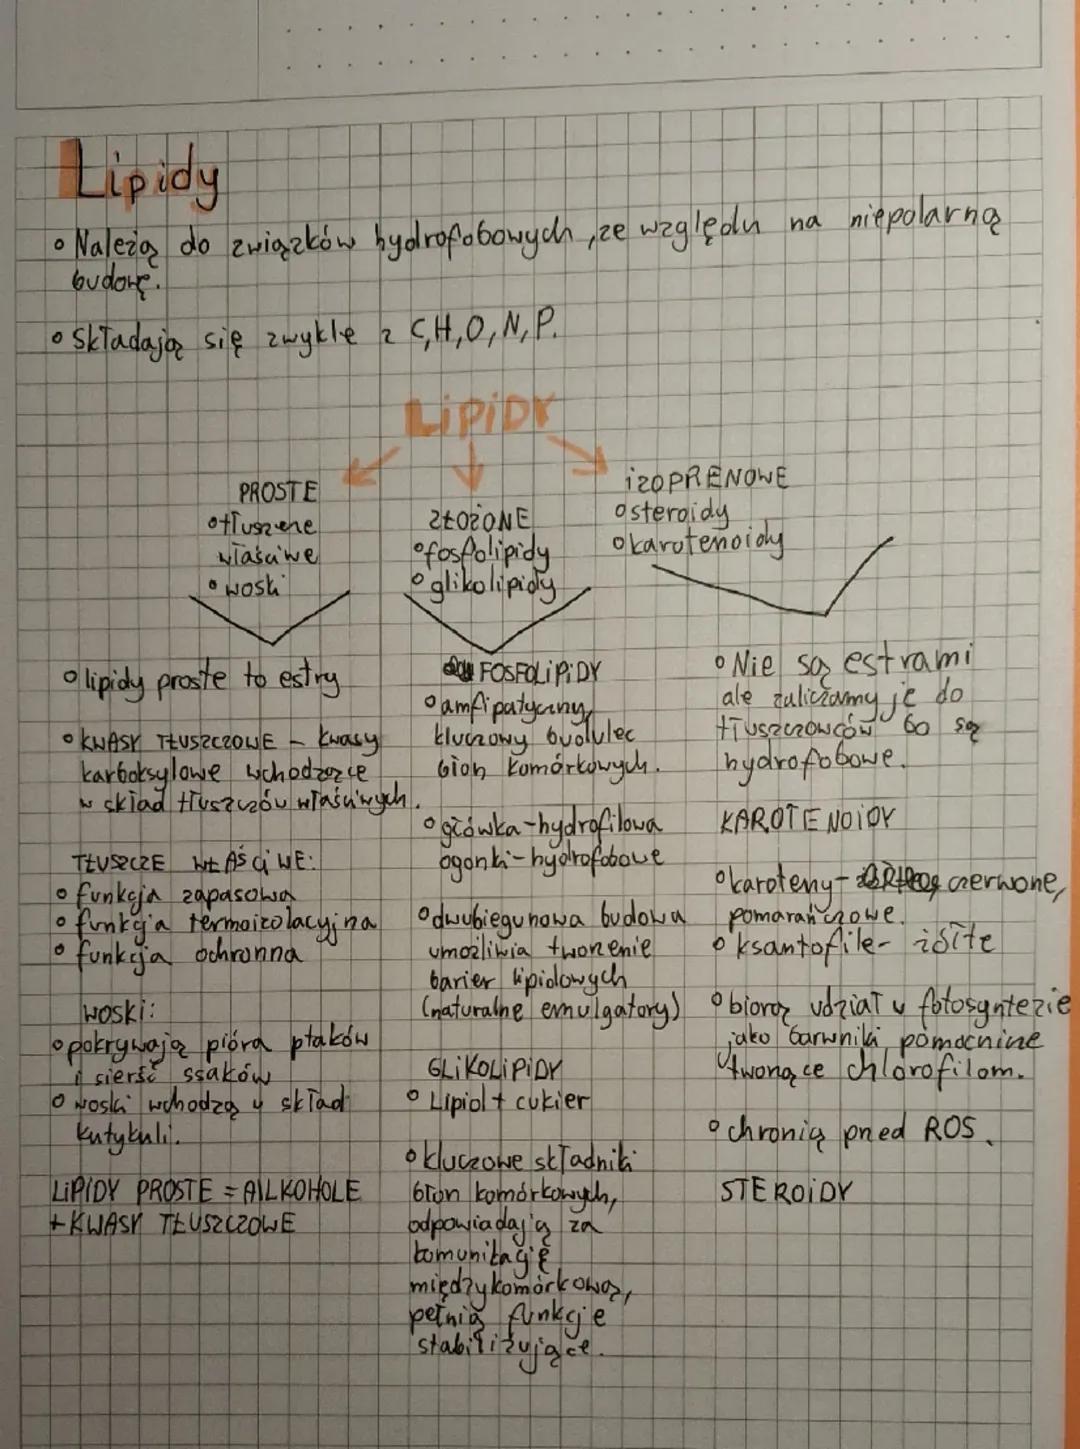 Lipidy
• Należą do związków hydrofobowych, ze względu na niepolarną
budowę.
• Składają się zwykle z C, H, O, N, P.
LIPIDY
PROSTE
• tłuszcze
właściwe
• woski
ZŁOŻONE
• fosfolipidy
• glikolipidy
IZOPRENOWE
• steroidy
• karotenoidy
• lipidy proste to estry
• KWASY TŁUSZCZOWE – kwasy
karboksylowe wchodzące
w skład tłuszczów właściwych.
TŁUSZCZE WŁAŚCIWE:
• funkcja zapasowa
• funkcja termoizolacyjna
• funkcja ochronna
WOSKI:
• pokrywają pióra ptaków
i sierść ssaków
• woski wchodzą w skład
kutykuli.
LIPIDY PROSTE = ALKOHOLE
+ KWASY TŁUSZCZOWE
FOSFOLIPIDY
• amfipatyczny,
kluczowy budulec
błon komórkowych.
• główka – hydrofilowa
ogonki – hydrofobowe
• dwubiegunowa budowa
umożliwia tworzenie
barier lipidowych
(naturalne emulgatory)
GLIKOLIPIDY
• Lipid + cukier
• kluczowe składniki
błon komórkowych,
odpowiadają za
komunikację
międzykomórkową,
pełnią funkcje
stabilizujące.
• Nie są estrami
ale zaliczamy je do
tłuszczowców bo są
hydrofobowe.
KAROTENOIDY
• karoteny – czerwone,
pomarańczowe.
• ksantofile – żółte
• biorą udział w fotosyntezie
jako barwniki pomocnicze
tworzące chlorofilom.
• chronią przed ROS.
STEROIDY